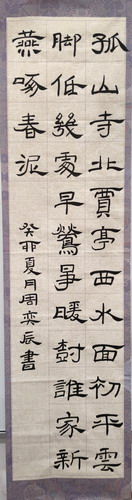 孤山寺北賈亭西水面初平雲
脚低幾處早鶯爭暖樹誰家新
燕啄春泥
癸卯夏月周奕辰書